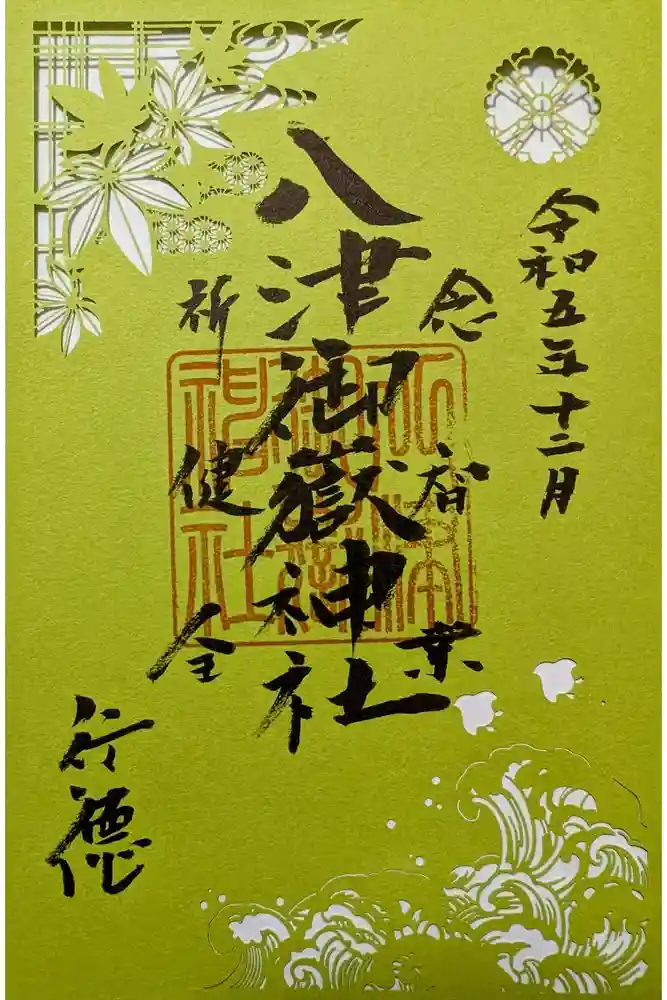 令和五年十二月
念
八津御嶽神社
祈健全
行徳
八津
御嶽
神社